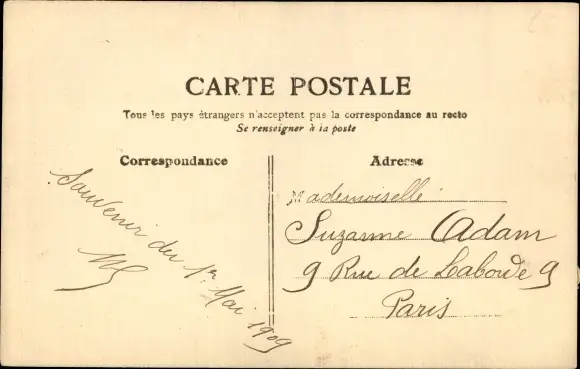 CARTE POSTALE
Tous les pays étrangers n'acceptent pas la correspondance au recto
Se renseigner à la poste
Correspondance
Souvenir du 1er Mai 1909
Adresse
Mademoiselle
Suzanne Adam
9 Rue de Laborde 9
Paris